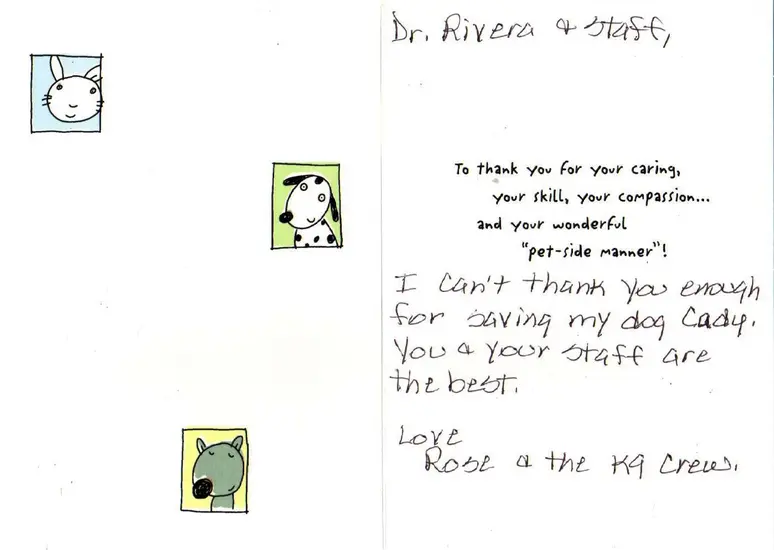 Dr. Rivera & Staff,
To thank you for your caring,
your skill, your compassion...
and your wonderful
"pet-side manner"!
I can't thank you enough
for saving my dog Cady.
You & your staff are
the best.
Love
Rose & the K9 Crew.